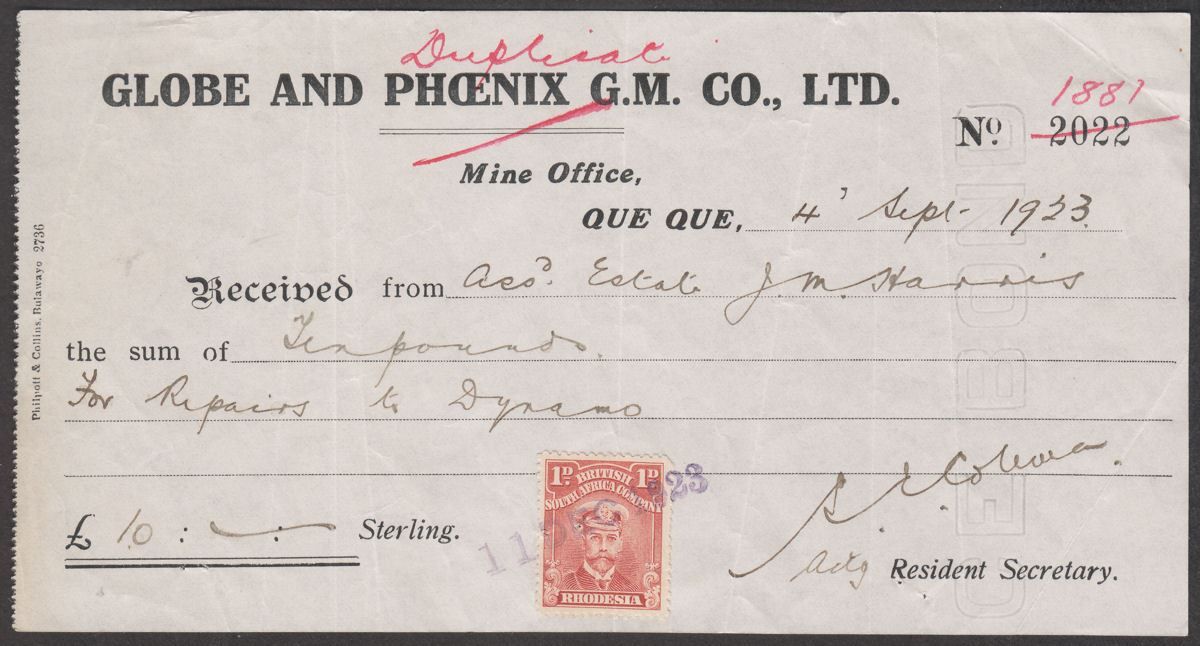 Duplicate
GLOBE AND PHŒNIX G.M. CO., LTD.
1881
No. 2022
Mine Office,
QUE QUE, 4' Sept 1923
Received from Assd. Estate J. M. Harris
the sum of Ten pounds.
For Repairs to Dynamo
£ 10 : — : — Sterling.
Actg Resident Secretary.
1D BRITISH 1D
SOUTH AFRICA COMPANY
RHODESIA
11 DEC 1923
Philpott & Collins, Bulawayo 2736